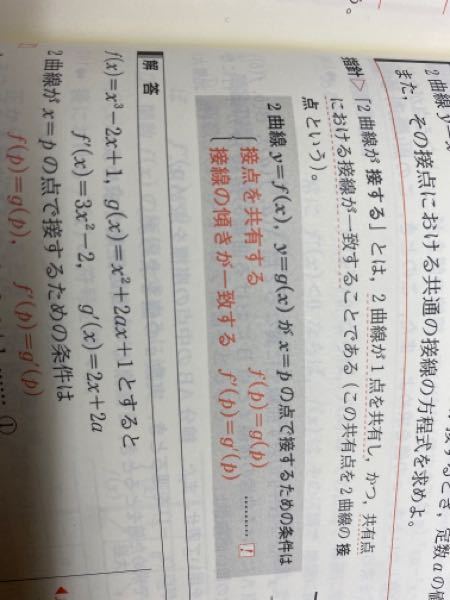 2曲線
接するとき,定数aの値
また,その接点における共通の接線の方程式を求めよ。
指針▷「2曲線が接する」とは,2曲線が1点を共有し,かつ,共有点
における接線が一致することである(この共有点を2曲線の接
点という)。
2曲線 y=f(x), y=g(x) が x=p の点で接するための条件は
接点を共有する f(p)=g(p)
接線の傾きが一致する f'(p)=g'(p) ……… !
解答
f(x)=x³-2x+1, g(x)=x²+2ax+1 とすると
f'(x)=3x²-2, g'(x)=2x+2a
2曲線が x=p の点で接するための条件は
f(p)=g(p), f'(p)=g'(p)
…… ①